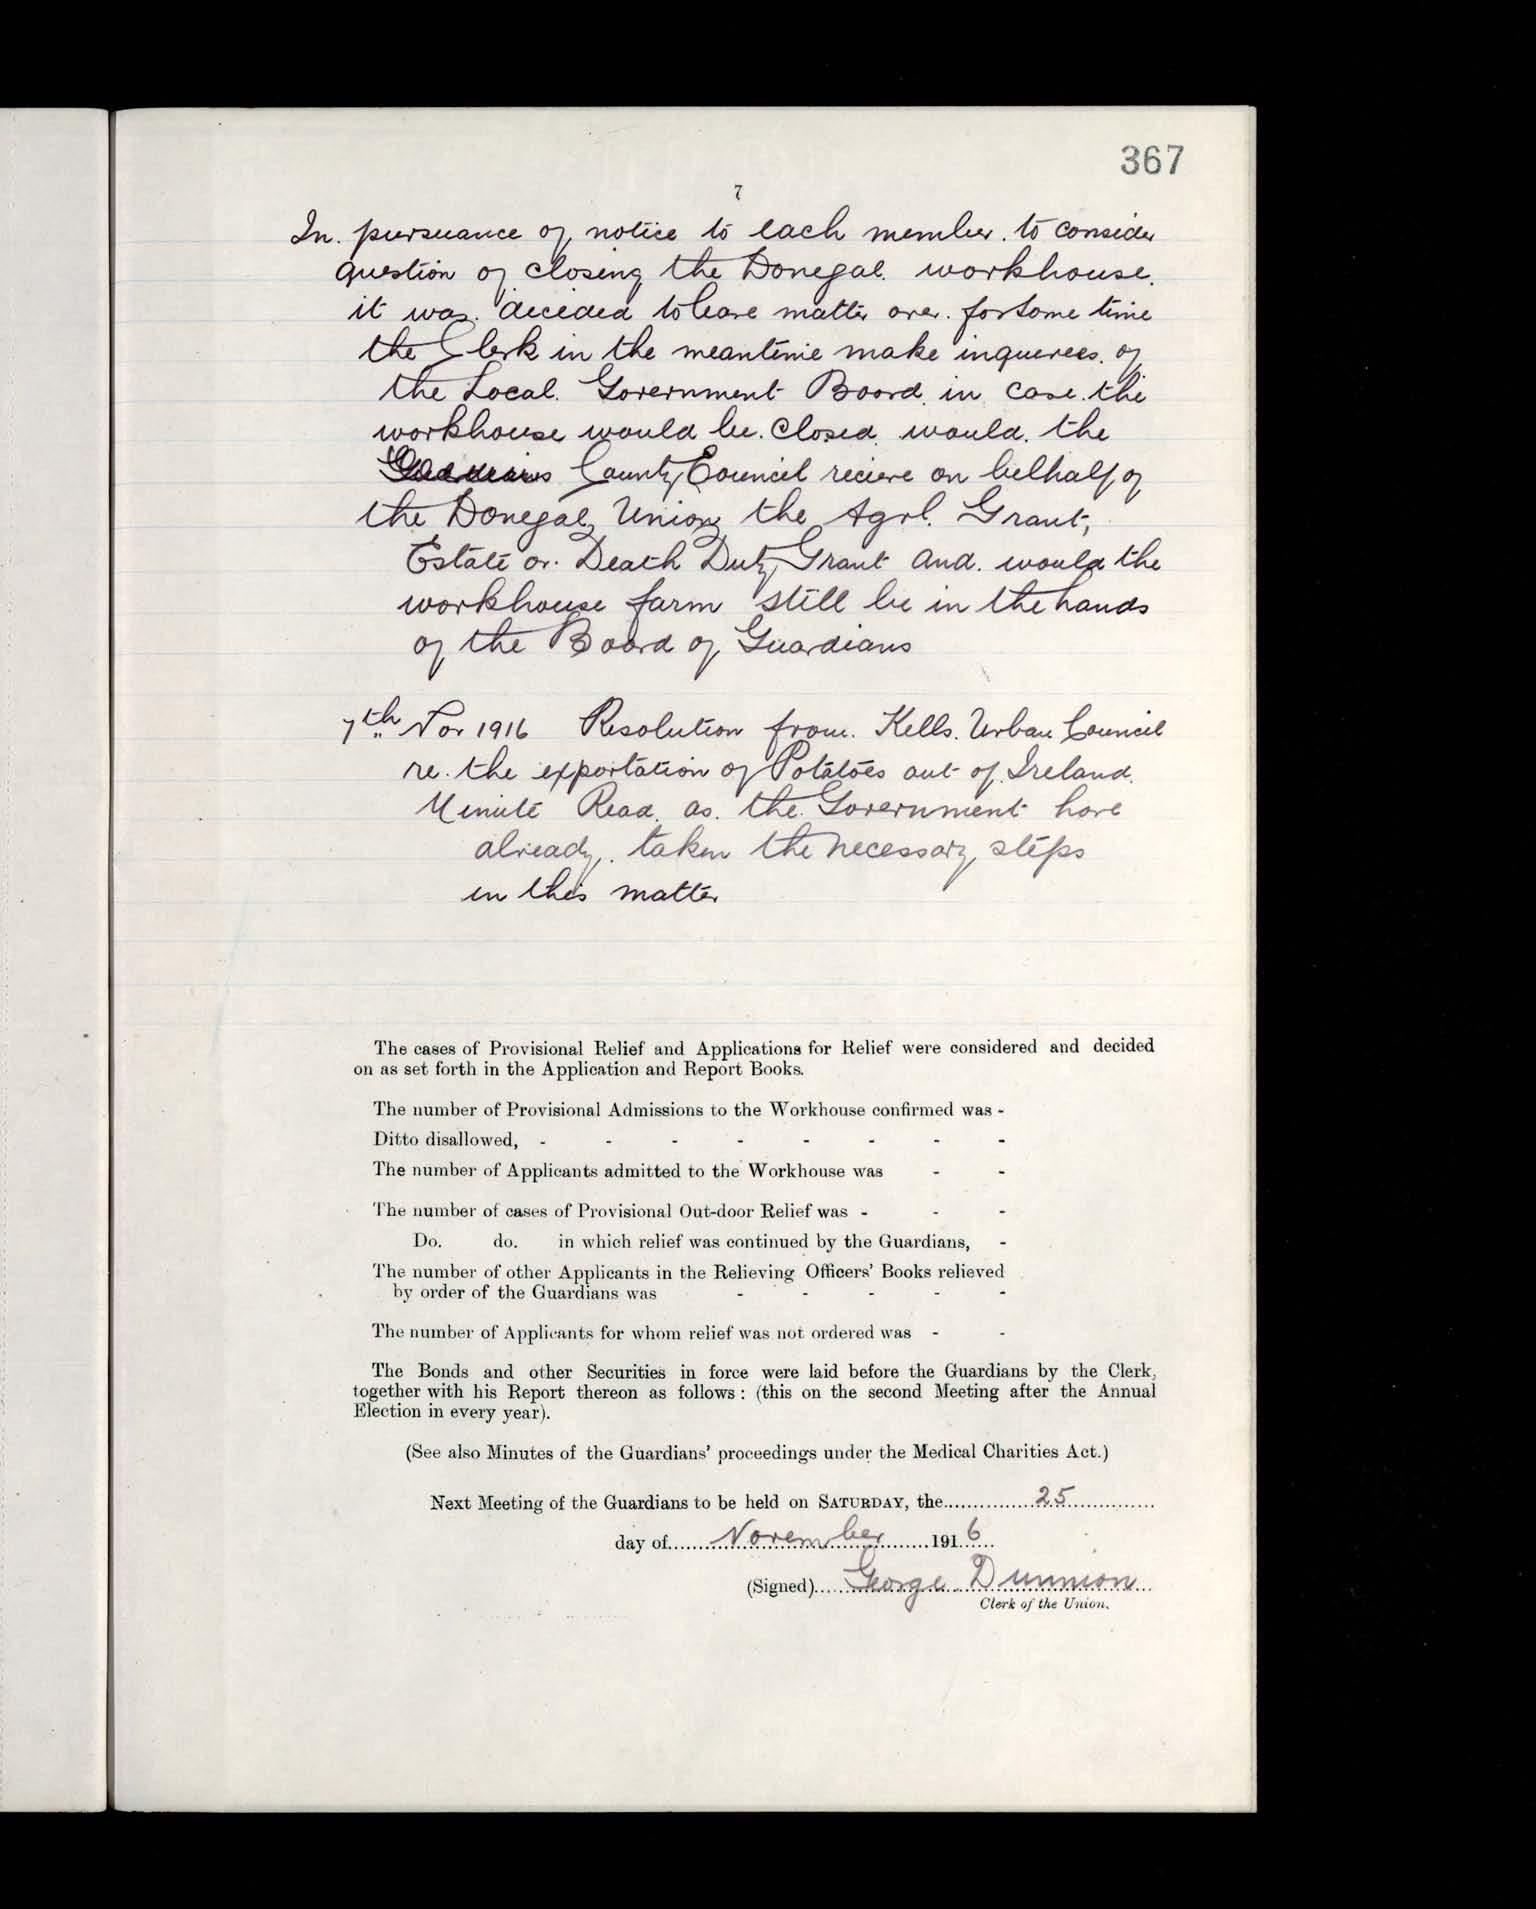 367
7
In. pursuance of notice to each member. to consider
question of closing the Donegal. workhouse.
it was. decided to leave matter over. for some time
the Clerk in the meantime make inquerees. of
the Local. Government Board. in case. the
workhouse would be. closed. would. the
Guardians County Council recieve on belhalf of
the Donegal Union the Agrl. Grant,
Estate or. Death Duty Grant and. would the
workhouse farm still be in the hands
of the Board of Guardians
7th Nov 1916 Resolution from. Kells. Urban Council
re. the exportation of Potatoes out of Ireland.
Minute Read. as. the. Government have
already,. taken the necessary steps
in this matter
The cases of Provisional Relief and Applications for Relief were considered and decided
on as set forth in the Application and Report Books.
The number of Provisional Admissions to the Workhouse confirmed was -
Ditto disallowed, - - - - - - - -
The number of Applicants admitted to the Workhouse was - -
The number of cases of Provisional Out-door Relief was - - -
Do. do. in which relief was continued by the Guardians, -
The number of other Applicants in the Relieving Officers' Books relieved
by order of the Guardians was - - - - -
The number of Applicants for whom relief was not ordered was - -
The Bonds and other Securities in force were laid before the Guardians by the Clerk,
together with his Report thereon as follows : (this on the second Meeting after the Annual
Election in every year).
(See also Minutes of the Guardians' proceedings under the Medical Charities Act.)
Next Meeting of the Guardians to be held on SATURDAY, the 25
day of November 1916
(Signed) George Dunnion
Clerk of the Union.